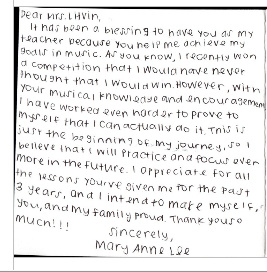 Dear Mrs. Lhvin,
It has been a blessing to have you as my
teacher because you help me achieve my
goals in music. As you know, I recently won
a competition that I would have never
thought that I would win. However, with
your musical knowledge and encouragement
I have worked even harder to prove to
myself that I can actually do it. This is
just the beginning of my journey, so I
believe that I will practice and focus even
more in the future. I appreciate for all
the lessons you've given me for the past
3 years, and I intend to make myself,
you, and my family proud. Thank you so
much!!!
Sincerely,
Mary Anne Lee